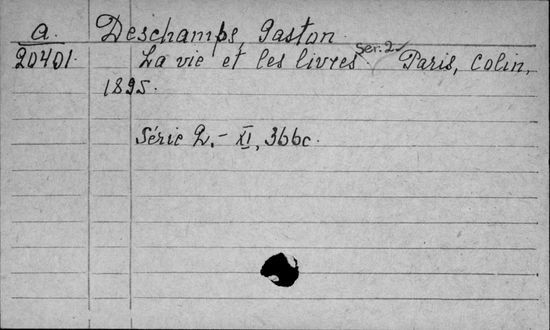 a. Deschamps, Gaston.
20401. La vie et les livres. Ser. 2 Paris, Colin,
1895.
Série 2. - XI, 366c.